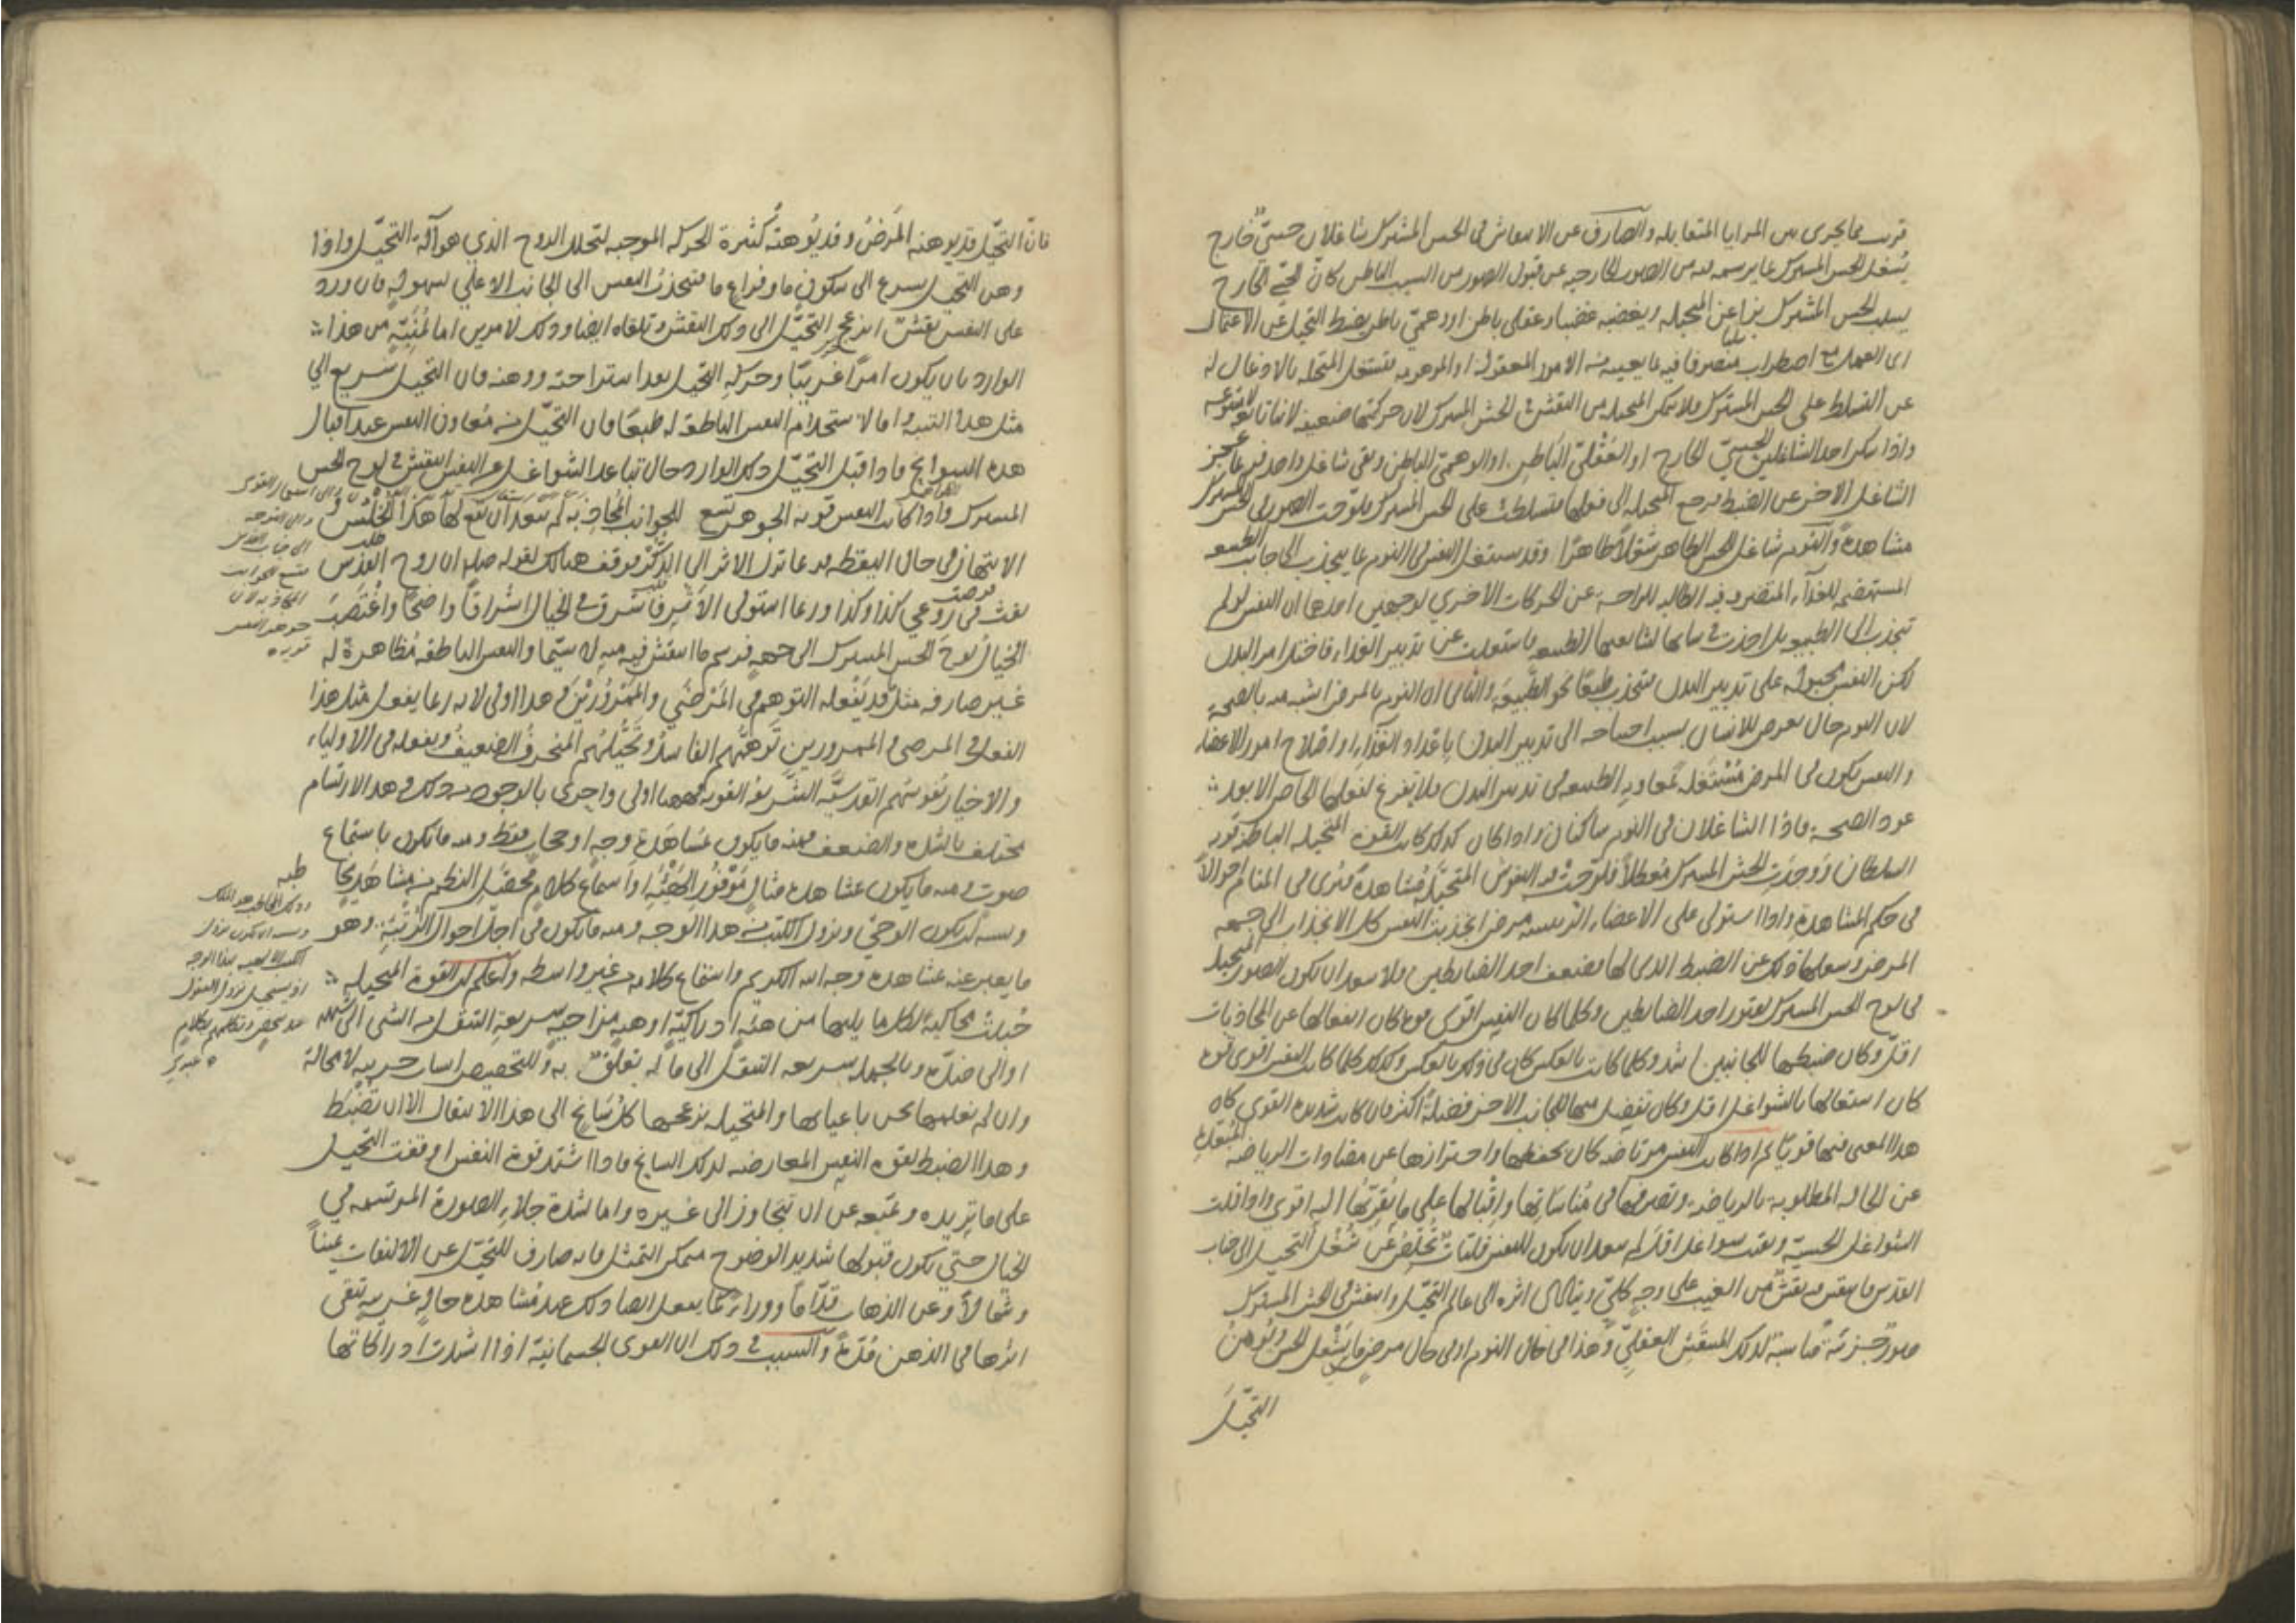 قريب مما يجرى بين المرايا المتقابله والصارف عن الانتقاش فى الحس المشترك شاغلان حسىّ خارج
يشغل الحس المشترك بما يرسمه فيه من الصور الخارجيه عن قبول الصور من السبب الباطن كانّ الحسّ الخارج
يسلب الحس المشترك بزا عن المتخيله ويغصبه غصبا وعقلى باطن او وهمىّ باطن يضبط التخيل عن الاعتمال
اى العمل مع اضطراب متصرفا فيه بما يعينه من الامور المعقوله او الموهومه فتشتغل المتخيله بالاذعان له
عن التسلط على الحس المشترك فلا تتمكن المتخيله من النقش فى الحسّ المشترك لان حركتها ضعيفه لانها تابعه لا متبوعه
واذا سكن احد الشاغلين الحسىّ الخارج او العقلىّ الباطن او الوهمىّ الباطن وبقى شاغل واحد فربما عجز
الشاغل الاخر عن الضبط فرجع المتخيله الى فعلها فتسلطت على الحس المشترك فلوّحت الصور فى الحس المشترك
مشاهدة والنوم شاغل للحس الظاهر شغلًا ظاهرًا وقد يشتغل النفس فى النوم بما ينجذب الى جانب الطبيعه
المستهضمه للغذآء المتصرفه فيه الطالبه للراحة عن الحركات الاخرى لوجهين احدهما ان النفس لو لم
تنجذب الى الطبيعه بل اخذت فى شانها لشايعتها الطبيعه فاشتغلت عن تدبير الغذاء فاختل امر البدن
لكن النفس مجبولة على تدبير البدن فتنجذب طبعًا نحو الطبيعة والثانى ان النوم بالمرض اشبه منه بالصحة
لان النوم حال تعرض للانسان بسبب احتياجه الى تدبير البدن باعداد الغذآء واصلاح امور الاعضاء
والنفس يكون فى المرض مشتغلة بمعاونة الطبيعه فى تدبير البدن فلا يتفرغ لفعلها الخاص الا بعد
عود الصحة فاذًا الشاغلان فى النوم ساكنان واذا كان كذلك كانت القوه المتخيله الباطنة قويه
السلطان ووجدت الحسّ المشترك معطلًا فلوّحت فيه النقوش المتخيلة مشاهدة فترى فى المنام احوالاً
فى حكم المشاهدة واذا استولى على الاعضاء الرئيسه مرض انجذبت النفس كل الانجذاب الى جهه
المرض وشغلها ذلك عن الضبط الذى لها فضعف احد الضابطين فلا يبعد ان تكون الصور المتخيله
فى لوح الحس المشترك لفتور احد الضابطين وكلما كان النفس اقوى قوة كان انفعالها عن المجاذبات
اقلّ وكان ضبطها للجانبين اشد وكلما كانت بالعكس كان ذلك بالعكس وكذلك كلما كانت النفس اقوى قوة
كان اشتغالها بالشواغل اقل وكان يفضل منها للجانب الاخر فضلة اكثر فان كانت شديده القوى كان
هذا المعنى فيها قويًا ثم اذا كانت النفس مرتاضه كان تحفظها واحترازها عن مضادات الرياضه المبعّدة
عن الحاله المطلوبة بالرياضه وتصرفها فى مناسباتها واقبالها على ما يقربها اليه اقوى واذا قلت
الشواغل الحسيّة وبقيت شواغل اقل لم يبعد ان يكون للنفس فلتات تخلص عن شغل التخيل الى جانب
القدس فانتقش فيه نقش من الغيب على وجه كلىّ ويتأدى اثره الى عالم التخيّل وانتقش فى الحسّ المشترك
صور جزئية مناسبة لذلك المنتقش العقلىّ وهذا فى حال النوم او فى حال مرض ما يشغل الحس ويوهن
التخيّل
فانّ التخيّل قد يوهنه المرض وقد يوهنه كثرة الحركه الموجبه لتحلل الروح الذي هو آلة التخيّل واذا
وهن التخيل يسرع الى سكون ما وفراغ ما فتنجذب النفس الى الجانب الاعلي بسهولة فان ورد
على النفس نقش انزعج التخيّل الى ذلك النقش وتلقاه ايضا وذلك لامرين اما لمُنَبِّه من هذا
الوارد بان يكون امرًا غريبًا وحركة التخيل بعد استراحته ووهنه فان التخيل سريع الي
مثل هذا التنبه واما لاستخدام النفس الناطقة له طبعًا فان التخيّل من معاون النفس عند اقبال
هذه السوانح فاذا قبل التخيّل ذلك الوارد حال تباعد الشواغل عن النفس انتقش فى لوح الحس
المشترك واذا كانت النفس قويه الجوهر تسع للجوانب المجاذبة لم يبعد ان يقع لها هذا الخلس و
الانتهاز فى حال اليقظه فربما نزل الاثر الى الذكر فوقف هنالك لقوله صلعم ان روح القدس
نفث فى روعى كذا وكذا وربما استولى الاثر فاشرق فى الخيال اشراقًا واضحًا واغتصب
الخيال لوح الحس المشترك الى جهته فرسم ما انتقش فيه منه لا سيّما والنفس الناطقه مظاهرة له
غير صارفه مثل ما قد يفعله التوهم فى المرضى والممرورين وهذا اولى لانه ربما يفعل مثل هذا
الفعل فى المرضى والممرورين توهّمهم الفاسد وتخيّلهم المنحرف الضعيف ويفعله فى الاولياء
والاخيار نفوسهم القدسيّة الشريفه القويه فهذا اولى واحرى بالوجود من ذلك وهذا الارتسام
يختلف بالشدة والضعف فمنه ما يكون مشاهدة وجه او حجاب فقط ومنه ما يكون باستماع
صوت ومنه ما يكون بمشاهدة مثال موفور الهيئة او استماع كلام محصّل النظم من مشاهد يخاطبه
ويشبه ان يكون الوحى ونزول الكتب من هذا الوجه ومنه ما يكون فى اجلّ احوال الزينة وهو
ما يعبر عنه بمشاهدة وجه الله الكريم واستماع كلامه من غير واسطه واعلم ان القوة المتخيله
جُبلت محاكية لكل ما يليها من هيئة ادراكيّة او هيئة مزاجية سريعة التنقل من الشى الى شبهه
او الى ضده وبالجملة سريعه التنقل الى ما له تعلق به وللتخصيص اسباب جزئيه لا محالة
وان لم نعلمها نحن باعيانها والمتخيله يزعجها كل سانح الى هذا الانتقال الا ان تضبط
وهذا الضبط لقوه النفس المعارضه لذلك السانح فاذا اشتد قوة النفس اوقفت التخيل
على ما يريده ويمنعه عن ان يتجاوز الى غيره واما لشدة جلاء الصورة المرتسمه في
الخيال حتي يكون قبولها شديد الوضوح متمكن التمثل فانه صارف للتخيّل عن الالتفات يمينًا
وشمالًا وعن الذهاب قدّامًا ووراء كما يفعل ايضا ذلك عند مشاهدة حالة غريبه تبقى
اثرها فى الذهن مُدّة والسبب فى ذلك ان القوى الجسمانية اذا اشتدت ادراكاتها